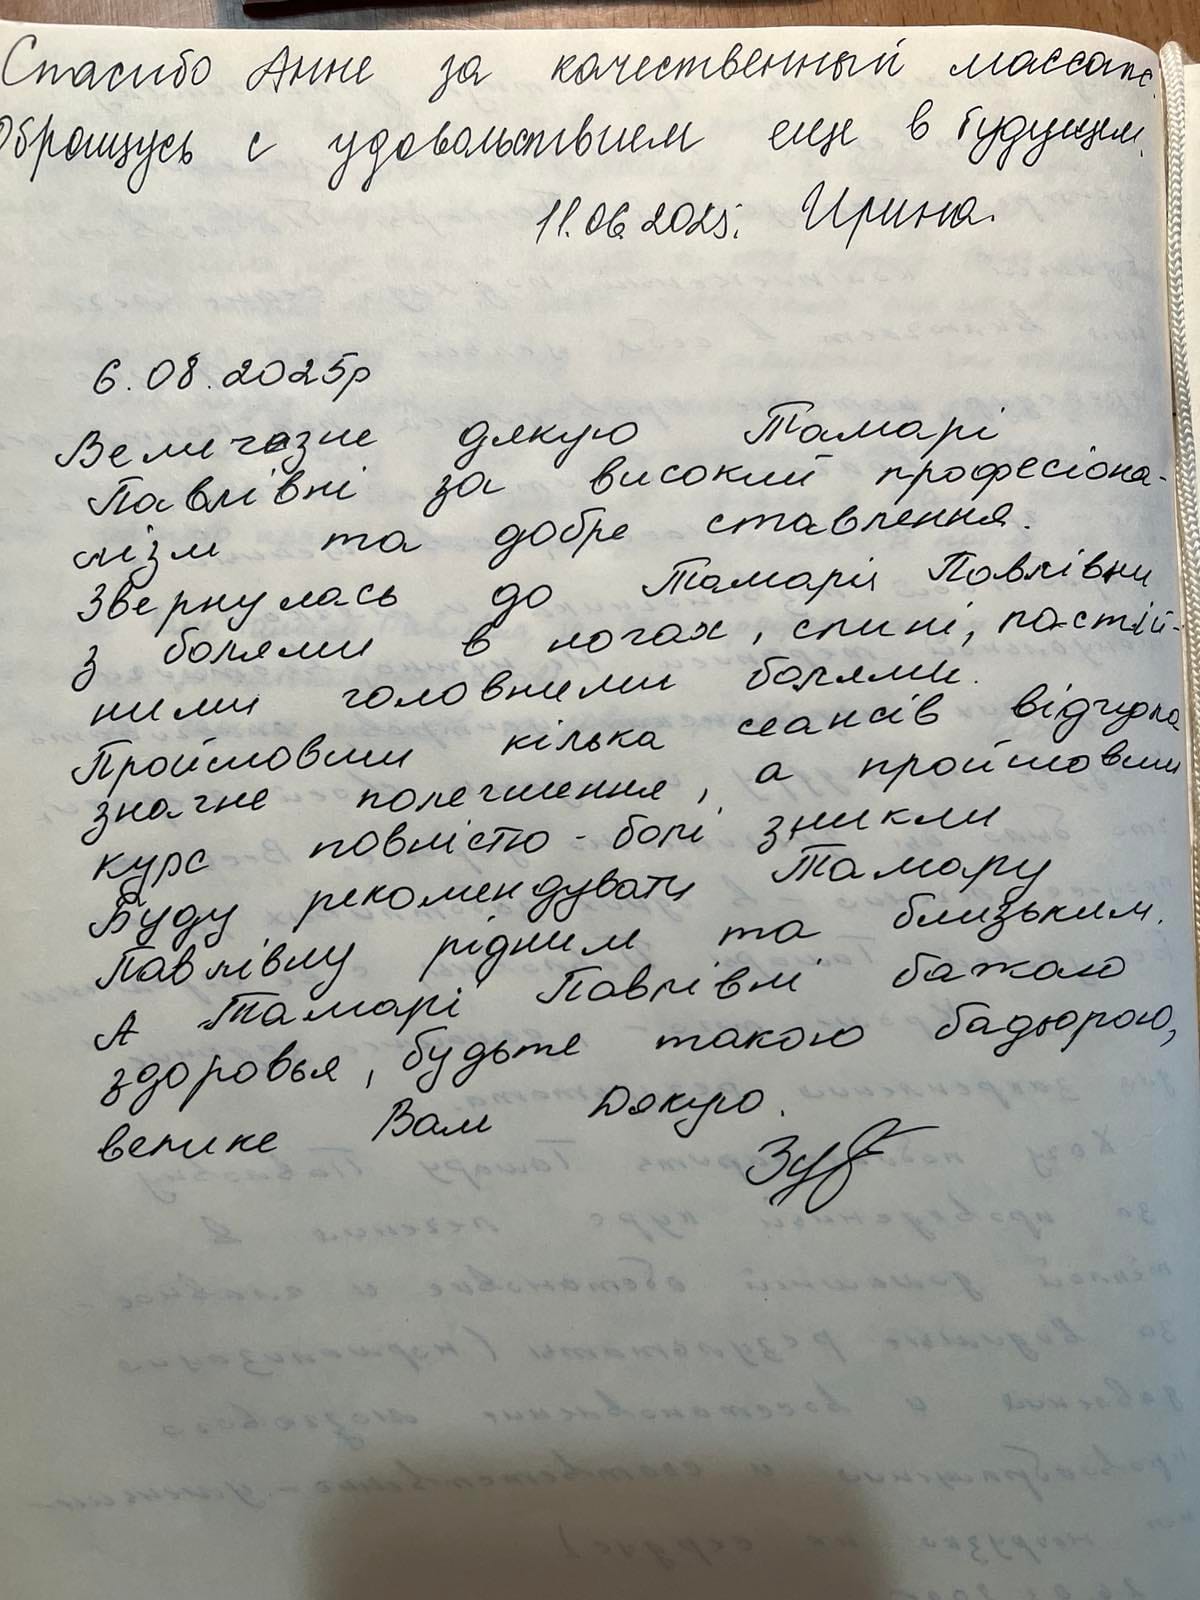 Спасибо Анне за качественный массаж.
Обращусь с удовольствием еще в будущем.
11.06.2025. Ирина.
6.08.2025р
Величезне дякую Тамарі
Павлівні за високий професіона-
лізм та добре ставлення.
Звернулась до Тамарія Павлівни
з болями в ногах, спині, постій-
ними головними болями.
Пройшовши кілька сеансів відчула
значне полегшення, а пройшовши
курс повністю - болі зникли
Буду рекомендувати Тамару
Павлівну рідним та близьким.
А Тамарі Павлівні бажаю
здоровья, будьте такою бадьорою,
велике Вам Дякую.